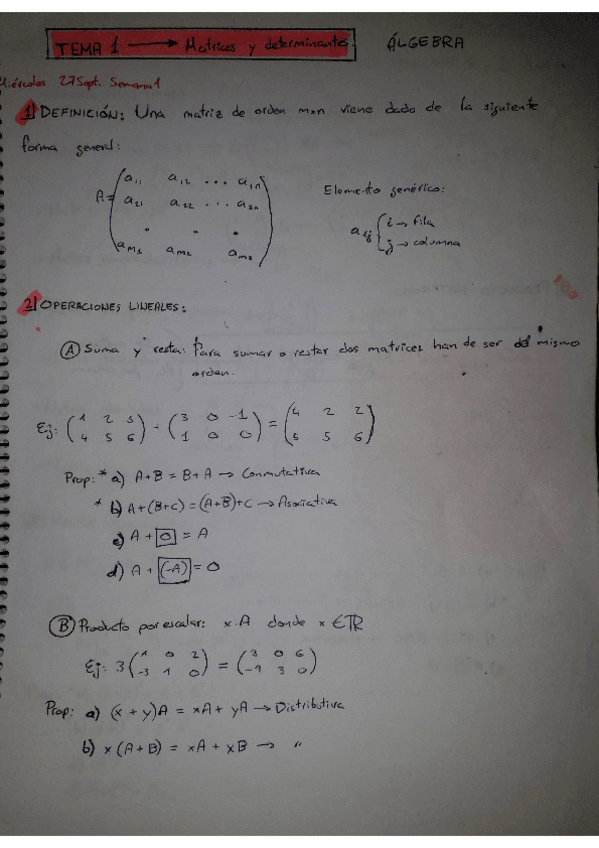 TEMA 1 → Matrices y determinantes. ÁLGEBRA
Miércoles 27 Sept. Semana 1
1) DEFINICIÓN: Una matriz de orden mxn viene dada de la siguiente
forma general:
A = ( a11 a12 ... a1n
a21 a22 ... a2n
. . .
am1 am2 amn )
Elemento genérico:
aij { i → fila
j → columna
2) OPERACIONES LINEALES:
(A) Suma y resta: Para sumar o restar dos matrices han de ser del mismo
orden.
Ej: ( 1 2 3 ) - ( 3 0 -1 ) = ( 4 2 2 )
( 4 5 6 ) ( 1 0 0 ) ( 5 5 6 )
Prop: * a) A+B = B+A → Conmutativa
* b) A+(B+C) = (A+B)+C → Asociativa
c) A + 0 = A
d) A + (-A) = 0
(B) Producto por escalar: x·A donde x ∈ R
Ej: 3 ( 1 0 2 ) = ( 3 0 6 )
( -3 1 0 ) ( -9 3 0 )
Prop: a) (x + y)A = xA + yA → Distributiva
b) x (A+B) = xA + xB → "